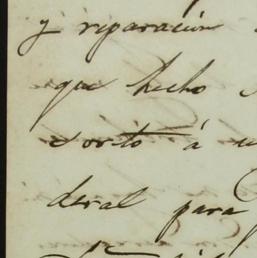 y reparación
que hecho
corto á u
deral para